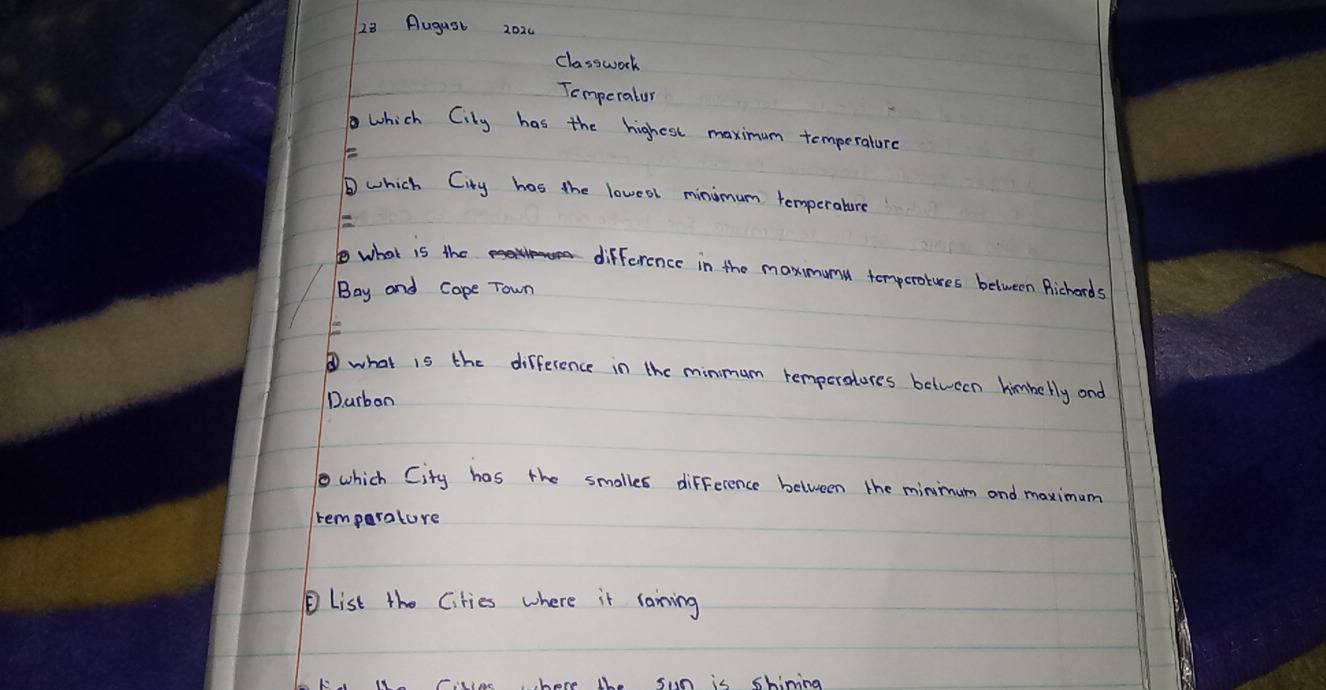 23 August 2024
Classwork
Temperatur
a which City has the highest maximum temperature
=
b which City has the lowest minimum temperature
=
c what is the difference in the maximumu temperatures between Richards
Bay and Cape Town
=
d what is the difference in the minimum temperatures between kimberly and
Durban
e which City has the smalles difference between the minimum and maximum
temparature
F List the Cities where it raining
the Cities where the sun is shining